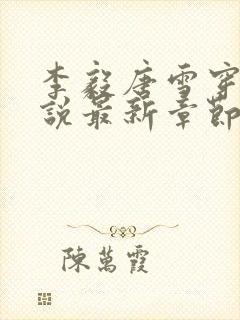 李毅唐雪穿
說最新章節
陳萬霞